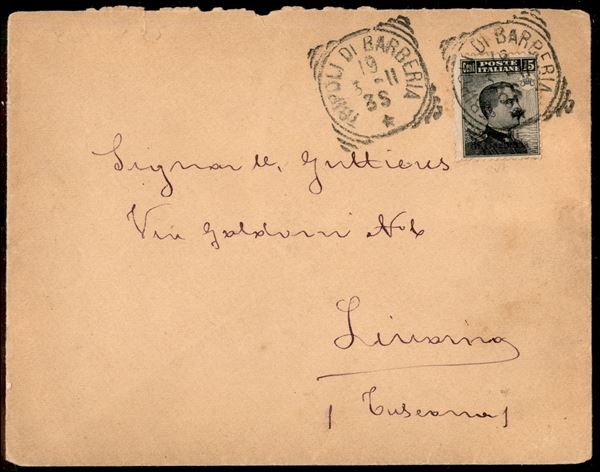 TRIPOLI DI BARBERIA
19
3 - 11
3S
DI BARBERIA
Cent 15
POSTE
ITALIANE
Signor
Via Goldoni No 6
Livorno
(Tuscana)